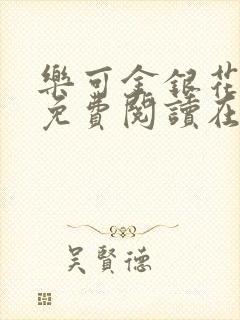 樂可金銀花
免費閱讀在
吳賢德